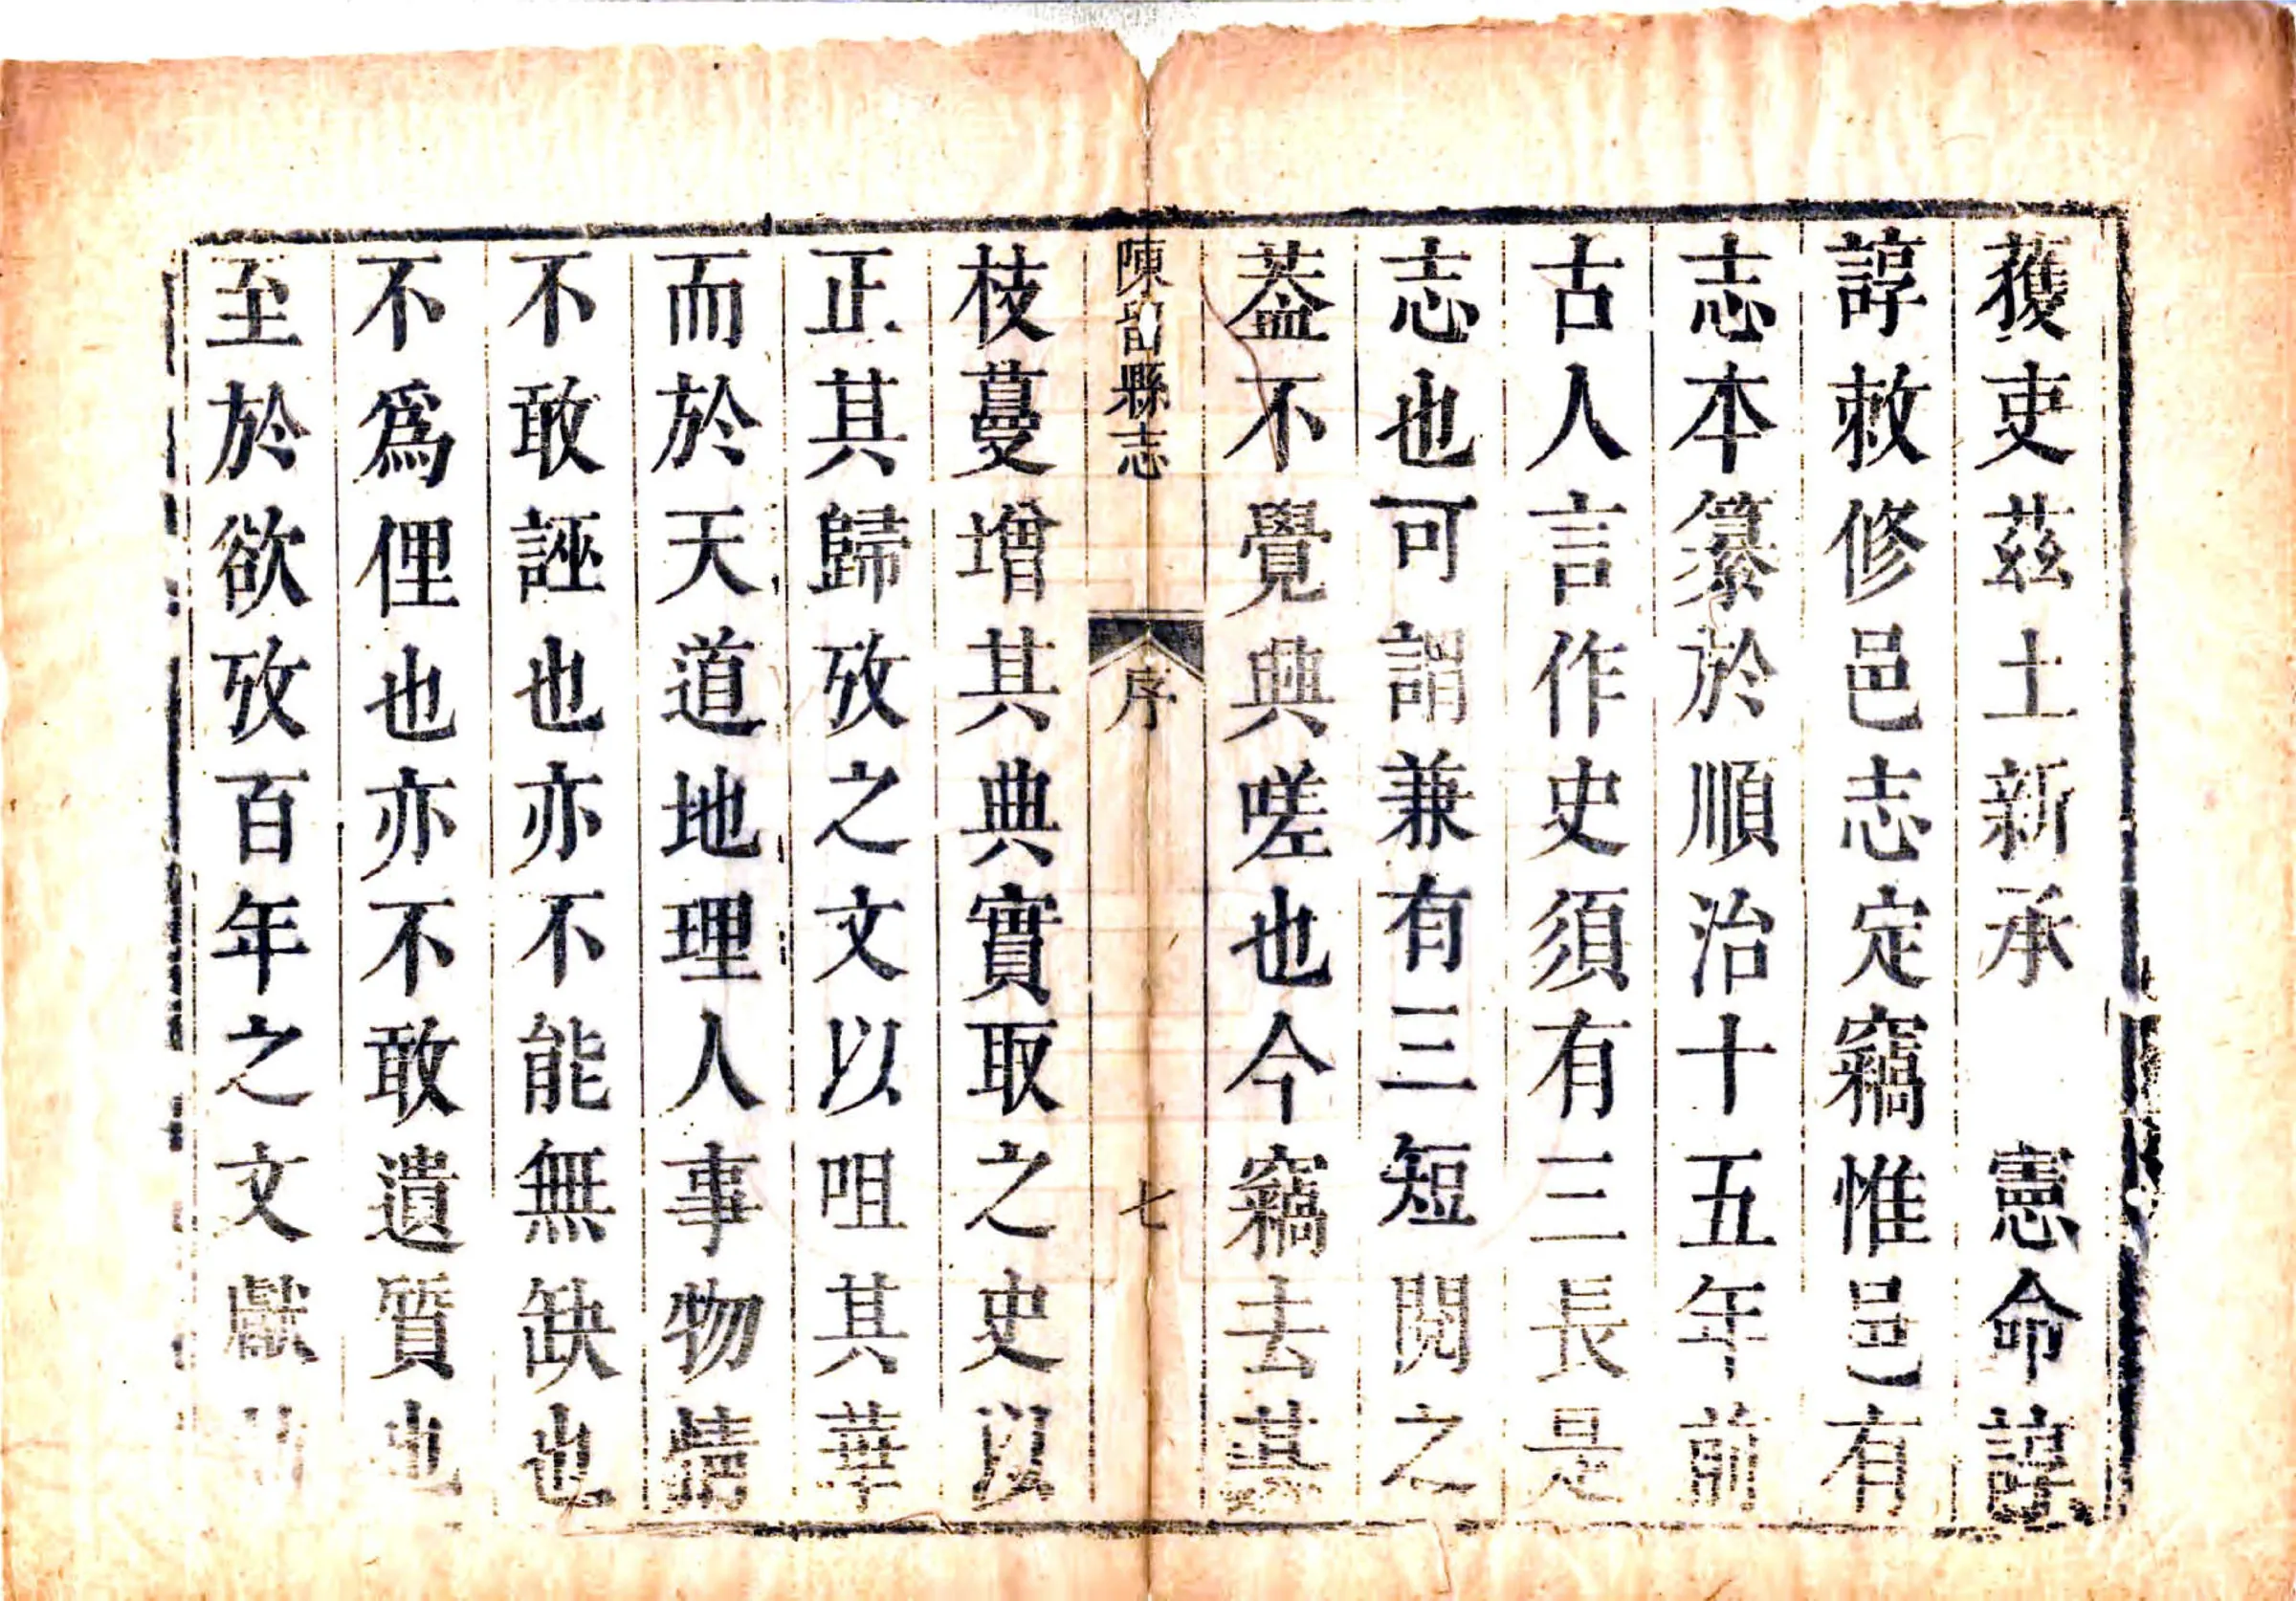 獲吏茲土新承　憲命諄
諄敕修邑志定竊惟邑有
志本纂於順治十五年前
古人言作史須有三長是
志也可謂兼有三短閱之
葢不覺興嗟也今竊去其
陳留縣志　序　七
枝蔓增其典實取之史以
正其歸攷之文以咀其華
而於天道地理人事物情
不敢誣也亦不能無缺也
不爲俚也亦不敢遺質也
至於欲攷百年之文獻